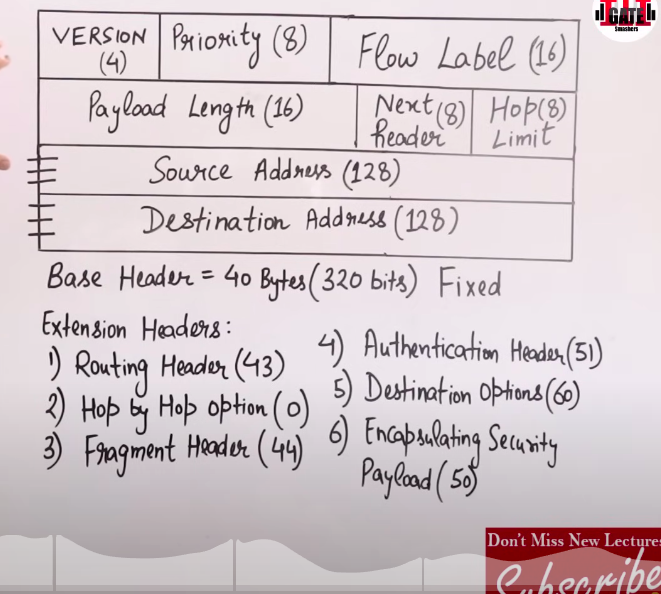 GATE
Smashers
VERSION (4)
Priority (8)
Flow Label (16)
Payload Length (16)
Next header (8)
Hop Limit (8)
Source Address (128)
Destination Address (128)
Base Header = 40 Bytes (320 bits) Fixed
Extension Headers:
1) Routing Header (43)
2) Hop by Hop option (0)
3) Fragment Header (44)
4) Authentication Header (51)
5) Destination Options (60)
6) Encapsulating Security
Payload (50)
Don't Miss New Lectures
Subscribe